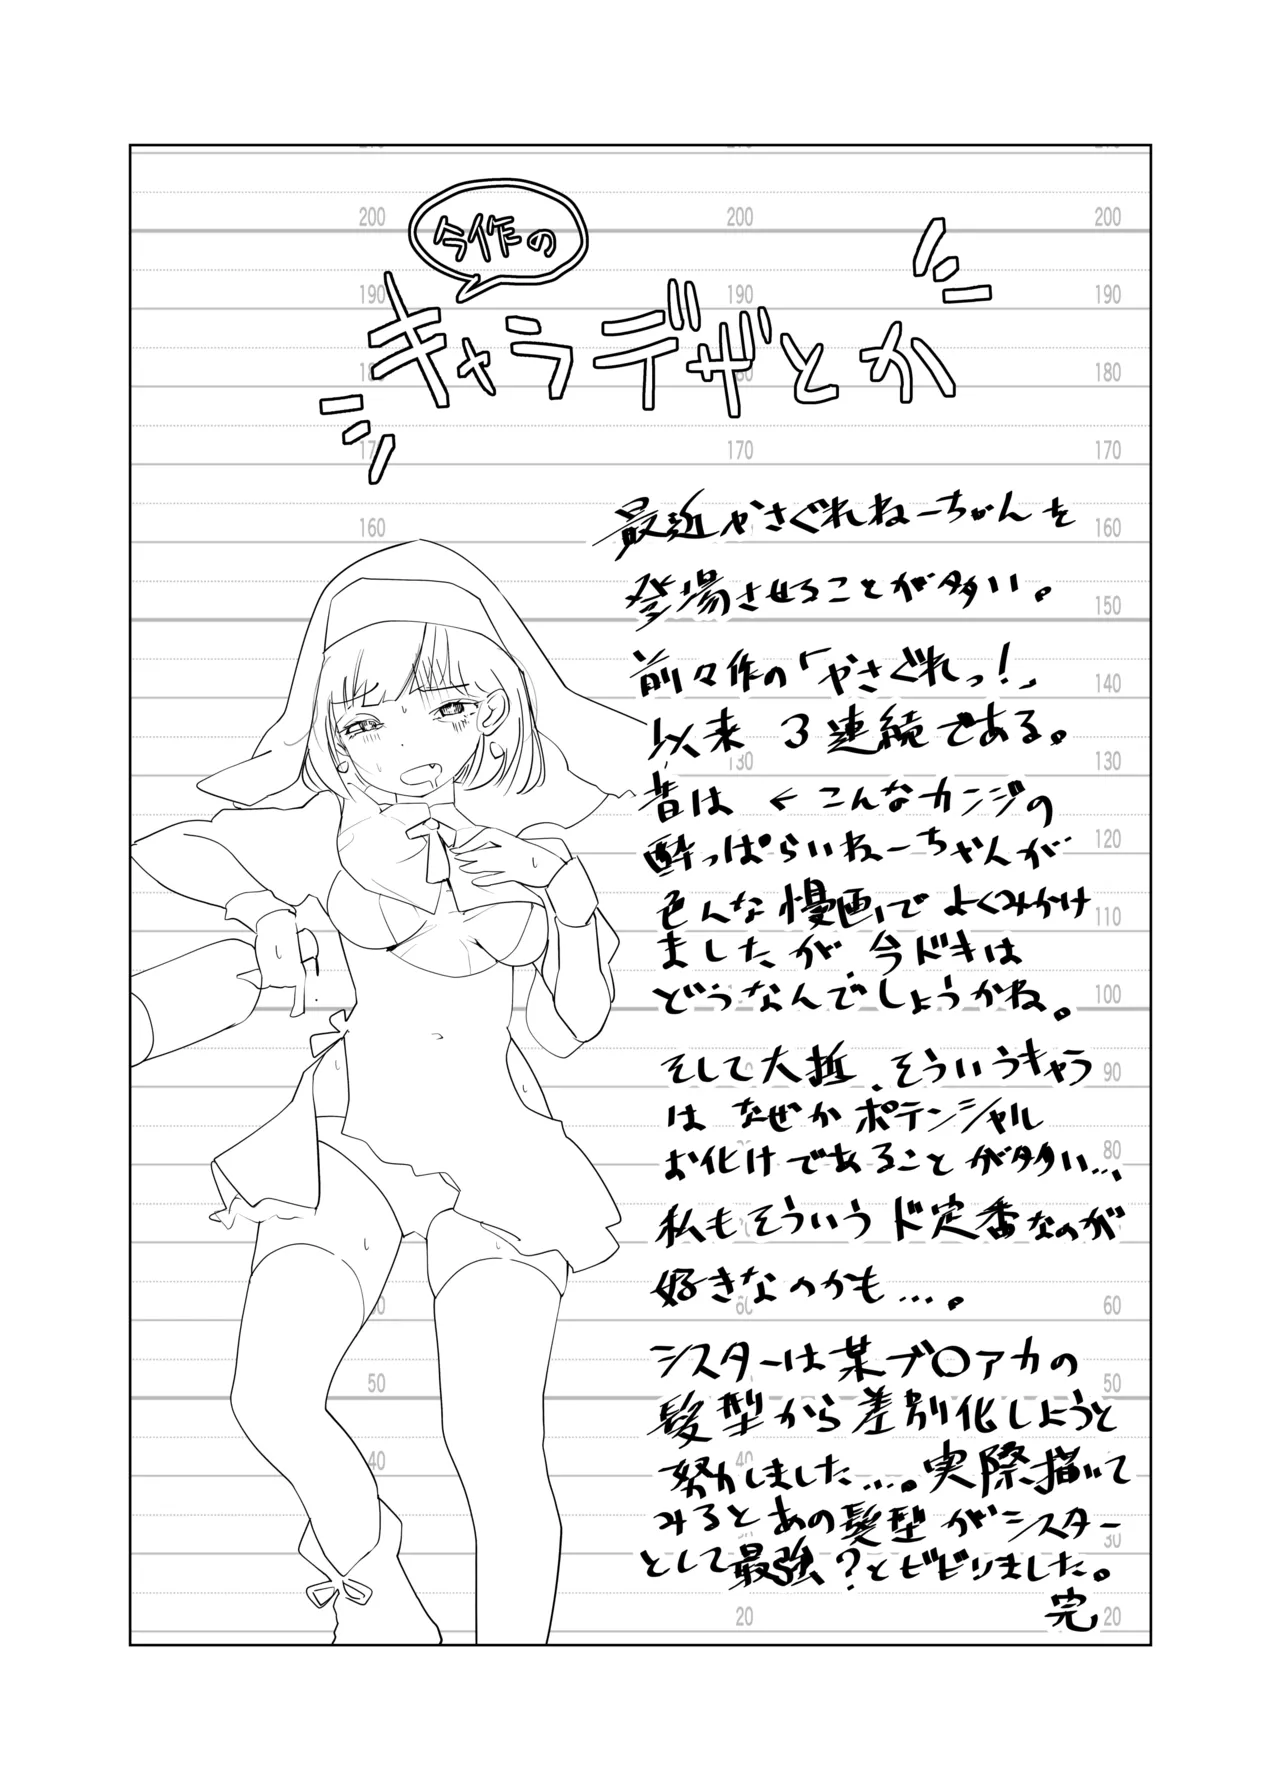 今作の
キャラデザとか
最近やさぐれねーちゃんを
登場させることが多い。
前々作の「やさぐれっ!」
以来 3連続である。
昔は ← こんなカンジの
酔っぱらいねーちゃんが
色んな漫画でよくみかけ
ましたが、今ドキは
どうなんでしょうかね。
そして大抵、そういうキャラ
は なぜか ポテンシャル
お化けであることが多い…、
私もそういうド定番なのが
好きなのかも…。
シスターは某ブ〇アカの
髪型から差別化しようと
努力しました…。実際描いて
みるとあの髪型がシスター
として最強?とビビりました。
完
200 200 200
190 190 190
180 180
170 170
160 160
150
140
130 130
120 120
110 110
100 100
90
80
60 60
50 50
40 40
30
20 20